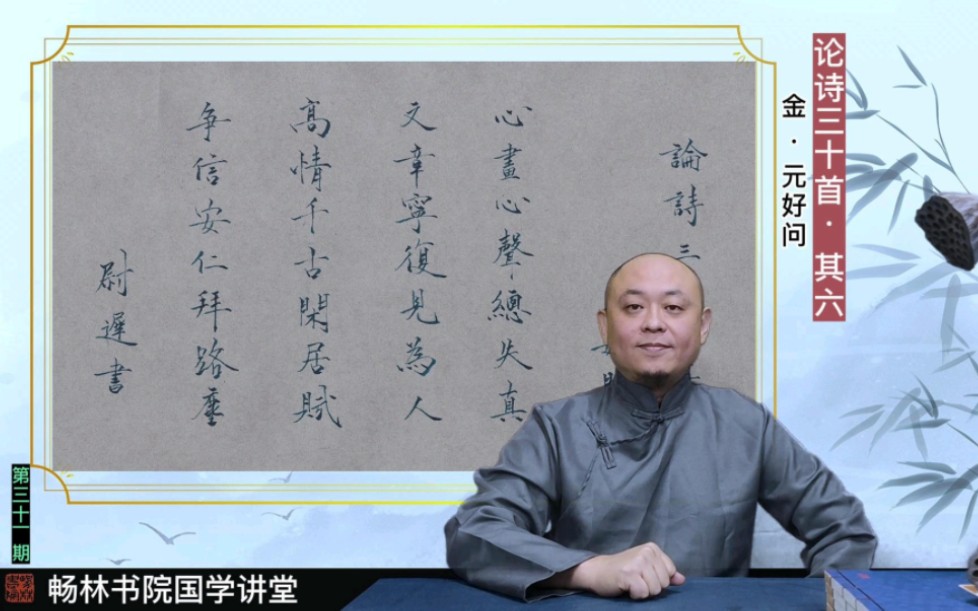 论诗三十首·其六
金·元好问
論詩三
心畫心聲總失真
文章寧復見為人
髙情千古閑居賦
争信安仁拜路塵
尉遲書
第三十一期
畅林书院国学讲堂